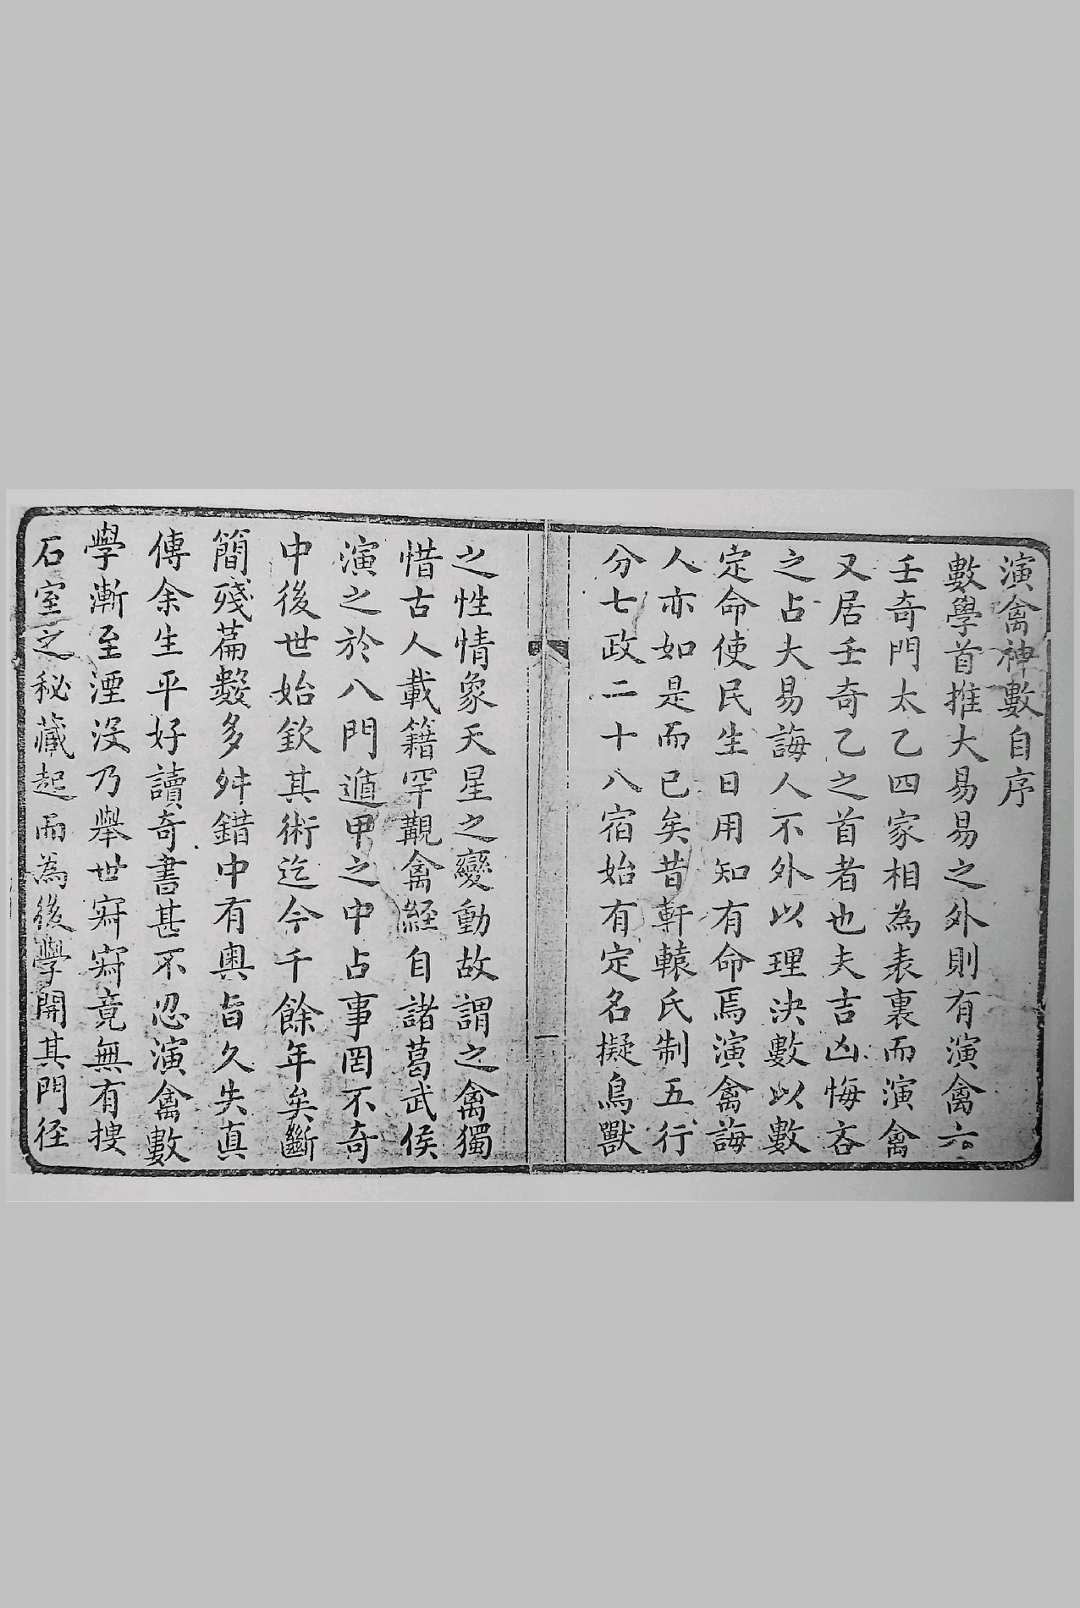 演禽神數自序
數學首推大易易之外則有演禽六
壬奇門太乙四家相為表裏而演禽
又居壬奇乙之首者也夫吉凶悔吝
之占大易誨人不外以理決數以數
定命使民生日用知有命焉演禽誨
人亦如是而已矣昔軒轅氏制五行
分七政二十八宿始有定名擬鳥獸
之性情象天星之變動故謂之禽獨
惜古人載籍罕覯禽經自諸葛武侯
演之於八門遁甲之中占事罔不奇
中後世始欽其術迄今千餘年矣斷
簡殘篇數多舛錯中有奧旨久失真
傳余生平好讀奇書甚不忍演禽數
學漸至湮沒乃舉世寂寂竟無有摟
石室之秘藏起而為後學開其門徑
一